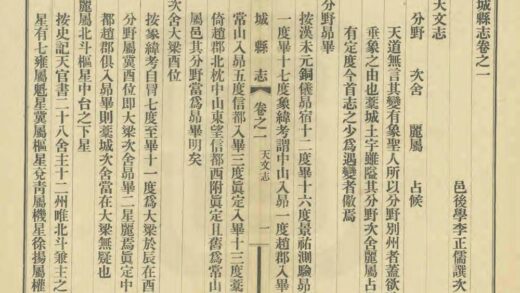 城縣志卷之一
邑後學李正儒譔次
天文志
分野 次舍 麗屬 占候
天道無言其變有象聖人所以分野別州者蓋欲
垂象之由也藁城土宇雖隘其分野次舍麗屬占
有定度今首志之少爲遇變者儆焉
分野昴畢
按漢末元銅儀昴宿十二度畢十六度景祐測驗昴
一度畢十七度象緯考謂中山入昴一度趙郡入畢
城縣志 卷之一 天文志 一
常山入昴五度信都入畢三度眞定入畢十三度藁
倚趙郡北枕中山東望信都西附眞定且舊為常山
屬邑其分野當爲昴畢明矣
次舍大梁酉位
按象緯考自胃七度至畢十一度為大梁於辰在酉
分野屬冀酉位即大梁次舍昴畢二星麗焉眞定中
都趙郡俱入昴畢則藁城次舍當在大梁無疑也
麗屬北斗樞星中台之下星
按史記天官書二十八舍主十二州唯北斗兼主之
星有七雍屬魁星冀屬樞星兗靑屬機星徐揚屬權